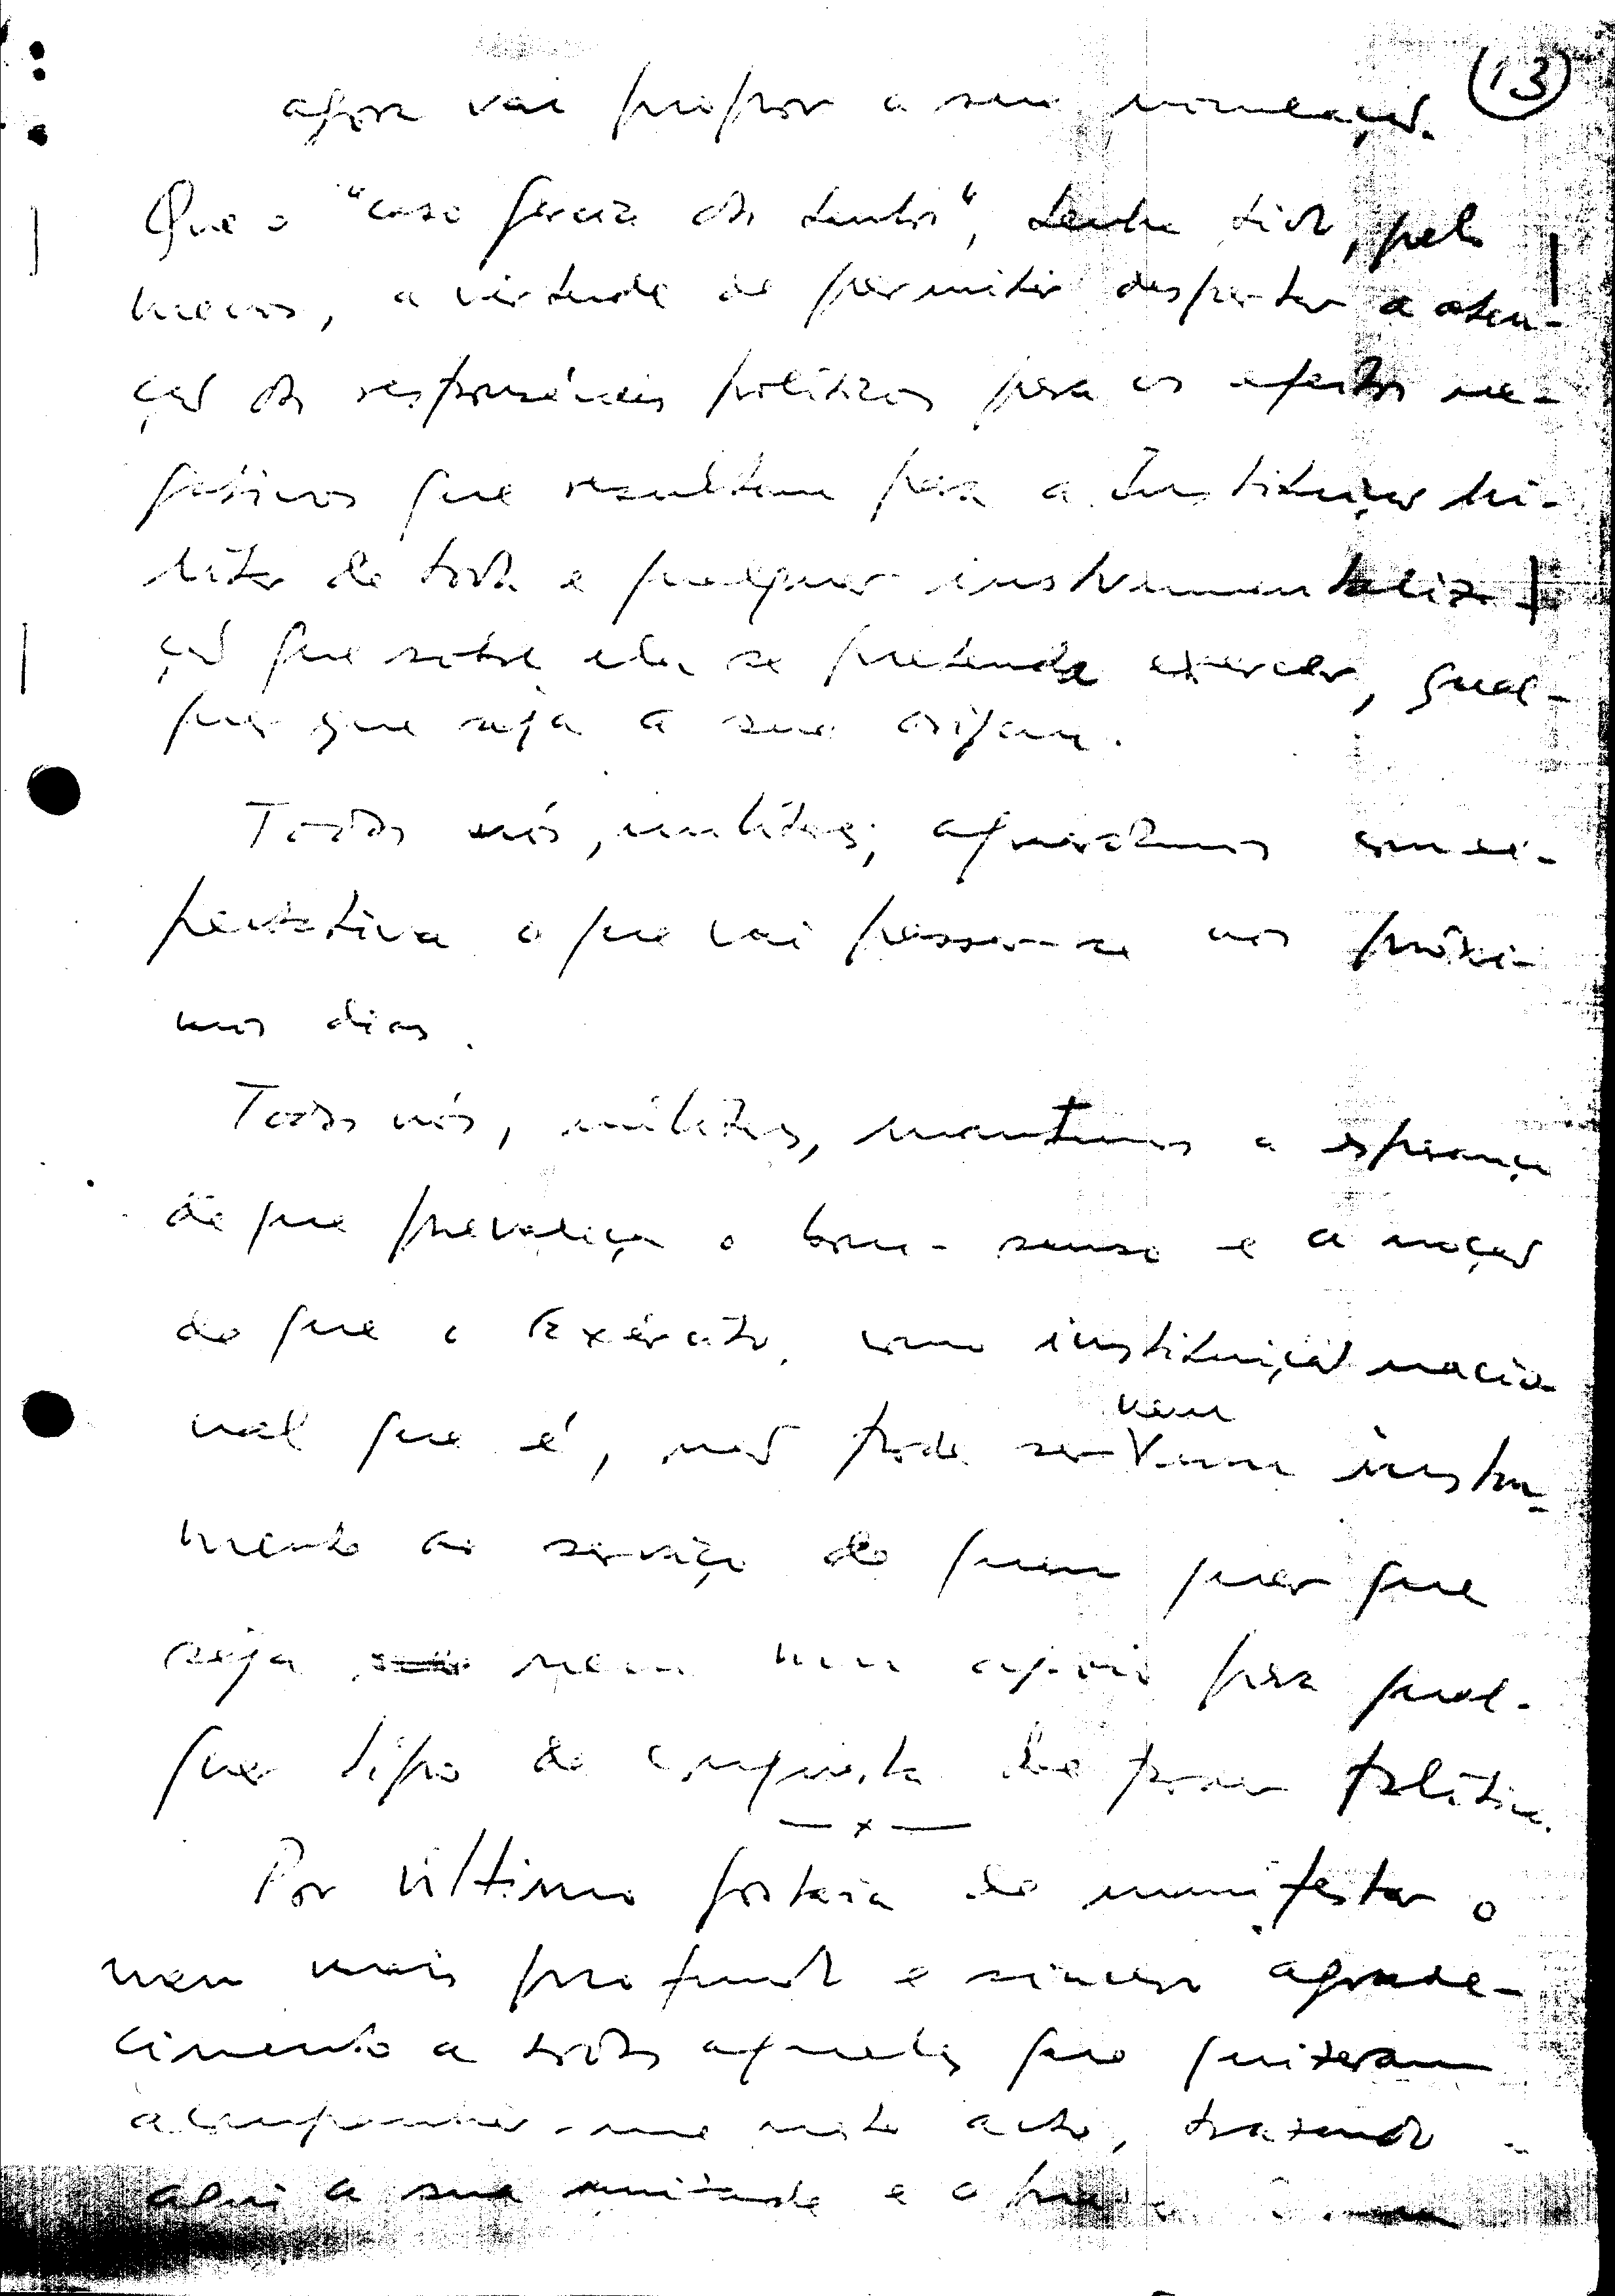 13
agora vai propor a sua nomeação.
Que o "caso Garcia dos Santos", tenha tido, pelo
menos, a virtude de permitir despertar a aten-
ção dos responsáveis políticos para os efeitos ne-
gativos que resultam para a Instituição Mi-
litar de toda e qualquer instrumentaliza-
ção que sobre ela se pretenda exercer, qual-
quer que seja a sua origem.
Todos nós, militares, aguardamos com ex-
pectativa o que vai passar-se nos próxi-
mos dias.
Todos nós, militares, mantemos a esperança
de que prevaleça o bom-senso e a noção
de que o Exército, como instituição nacio-
nal que é, não pode ser nem um instru-
mento ao serviço de quem quer que
seja nem um apoio para qual-
quer tipo de conquista de poder político.
— x —
Por último gostaria de manifestar o
meu mais profundo e sincero agrade-
cimento a todos aqueles que quiseram
acompanhar-me neste acto, trazendo
aqui a sua amizade e o